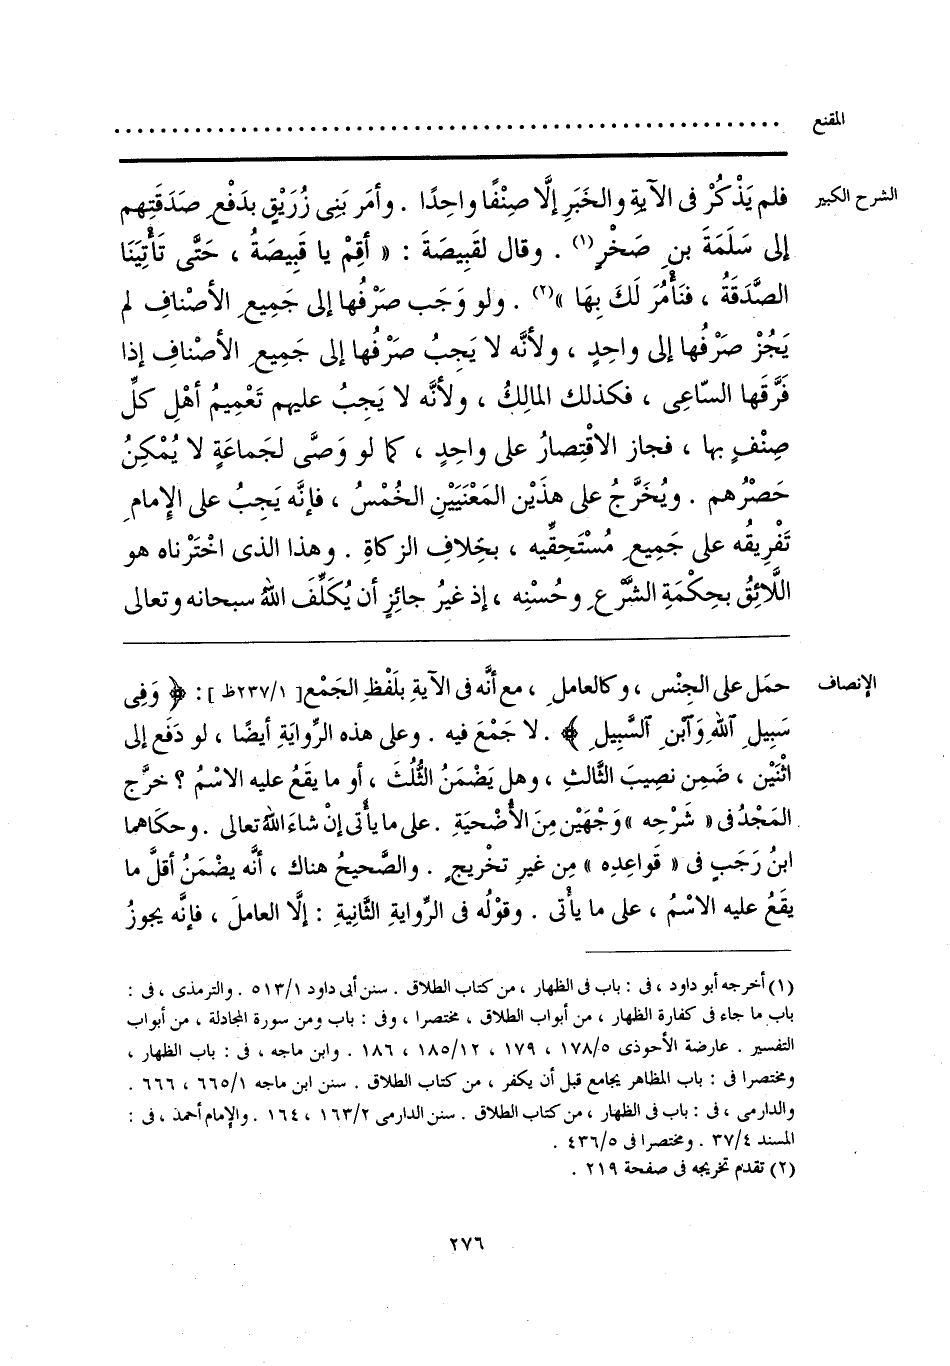 المقنع ................................................
الشرح الكبير فلم يَذْكُرْ فى الآيةِ والخَبَرِ إلَّا صِنْفًا واحِدًا . وأمَر بَنِى زُرَيْقٍ بدَفْعِ صَدَقَتِهم
إلى سَلَمَةَ بنِ صَخْرٍ(١) . وقال لقَبِيصَةَ : « أقِمْ يا قَبِيصَةُ ، حَتَّى تَأْتِيَنَا
الصَّدَقَةُ ، فنَأْمُرَ لَكَ بِهَا »(٢) . ولو وَجَب صَرْفُها إلى جَمِيعِ الأصْنافِ لم
يَجُزْ صَرْفُها إلى واحِدٍ ، ولأنَّه لا يَجِبُ صَرْفُها إلى جَمِيعِ الأصنافِ إذا
فَرَّقَها السّاعِى ، فكذلك المالِكُ ، ولأنَّه لا يَجِبُ عليهم تَعْمِيمُ أهْلِ كلِّ
صِنْفٍ بها ، فجاز الاقْتِصارُ على واحِدٍ ، كما لو وَصَّى لجَماعَةٍ لا يُمْكِنُ
حَصْرُهم . ويُخَرَّجُ على هذَيْن المَعْنَيَيْنِ الخُمْسُ ، فإنَّه يَجِبُ على الإِمامِ
تَفْرِيقُه على جَمِيعِ مُسْتَحِقِّيه ، بخِلافِ الزكاةِ . وهذا الذى اخْتَرْناه هو
اللَّائِقُ بحِكْمَةِ الشَّرْعِ وحُسْنِه ، إذ غيرُ جائِزٍ أن يُكَلِّفَ اللهُ سبحانه وتعالى
الإنصاف حمَل على الجِنْس ، وكالعاملِ ، مع أنَّه فى الآيةِ بلَفْظِ الجَمْع[ ٢٣٧/١ظ ] : ﴿ وَفِى
سَبِيلِ ٱللهِ وَٱبْنِ ٱلسَّبِيلِ ﴾ . لا جَمْعَ فيه . وعلى هذه الرِّوايَةِ أيضًا ، لو دَفَع إلى
اثْنَيْن ، ضَمِن نصِيبَ الثَّالثِ ، وهل يَضْمَنُ الثُّلُثَ ، أو ما يقَعُ عليه الاسْمُ ؟ خرَّج
المَجْدُ فى « شَرْحِه » وَجْهَيْن مِنَ الأُضْحيَةِ . على ما يأْتى إنْ شاءَ اللهُ تعالى . وحكاهما
ابنُ رَجَبٍ فى « قَواعِدِه » مِن غيرِ تخْريجٍ . والصَّحيحُ هناك ، أنَّه يضْمَنُ أقلَّ ما
يقَعُ عليه الاسْمُ ، على ما يأْتى . وقوْلُه فى الرِّوايةِ الثَّانيةِ : إلَّا العاملَ ، فإنَّه يجوزُ
(١) أخرجه أبو داود ، فى : باب فى الظهار ، من كتاب الطلاق . سنن أبى داود ٥١٣/١ . والترمذى ، فى :
باب ما جاء فى كفارة الظهار ، من أبواب الطلاق ، مختصرا ، وفى : باب ومن سورة المجادلة ، من أبواب
التفسير . عارضة الأحوذى ١٧٨/٥ ، ١٧٩ ، ١٨٥/١٢ ، ١٨٦ . وابن ماجه ، فى : باب الظهار ،
ومختصرا فى : باب المظاهر يجامع قبل أن يكفر ، من كتاب الطلاق . سنن ابن ماجه ٦٦٥/١ ، ٦٦٦ .
والدارمى ، فى : باب فى الظهار ، من كتاب الطلاق . سنن الدارمى ١٦٣/٢ ، ١٦٤ . والإمام أحمد ، فى :
المسند ٣٧/٤ . ومختصرا فى ٤٣٦/٥ .
(٢) تقدم تخريجه فى صفحة ٢١٩ .
٢٧٦